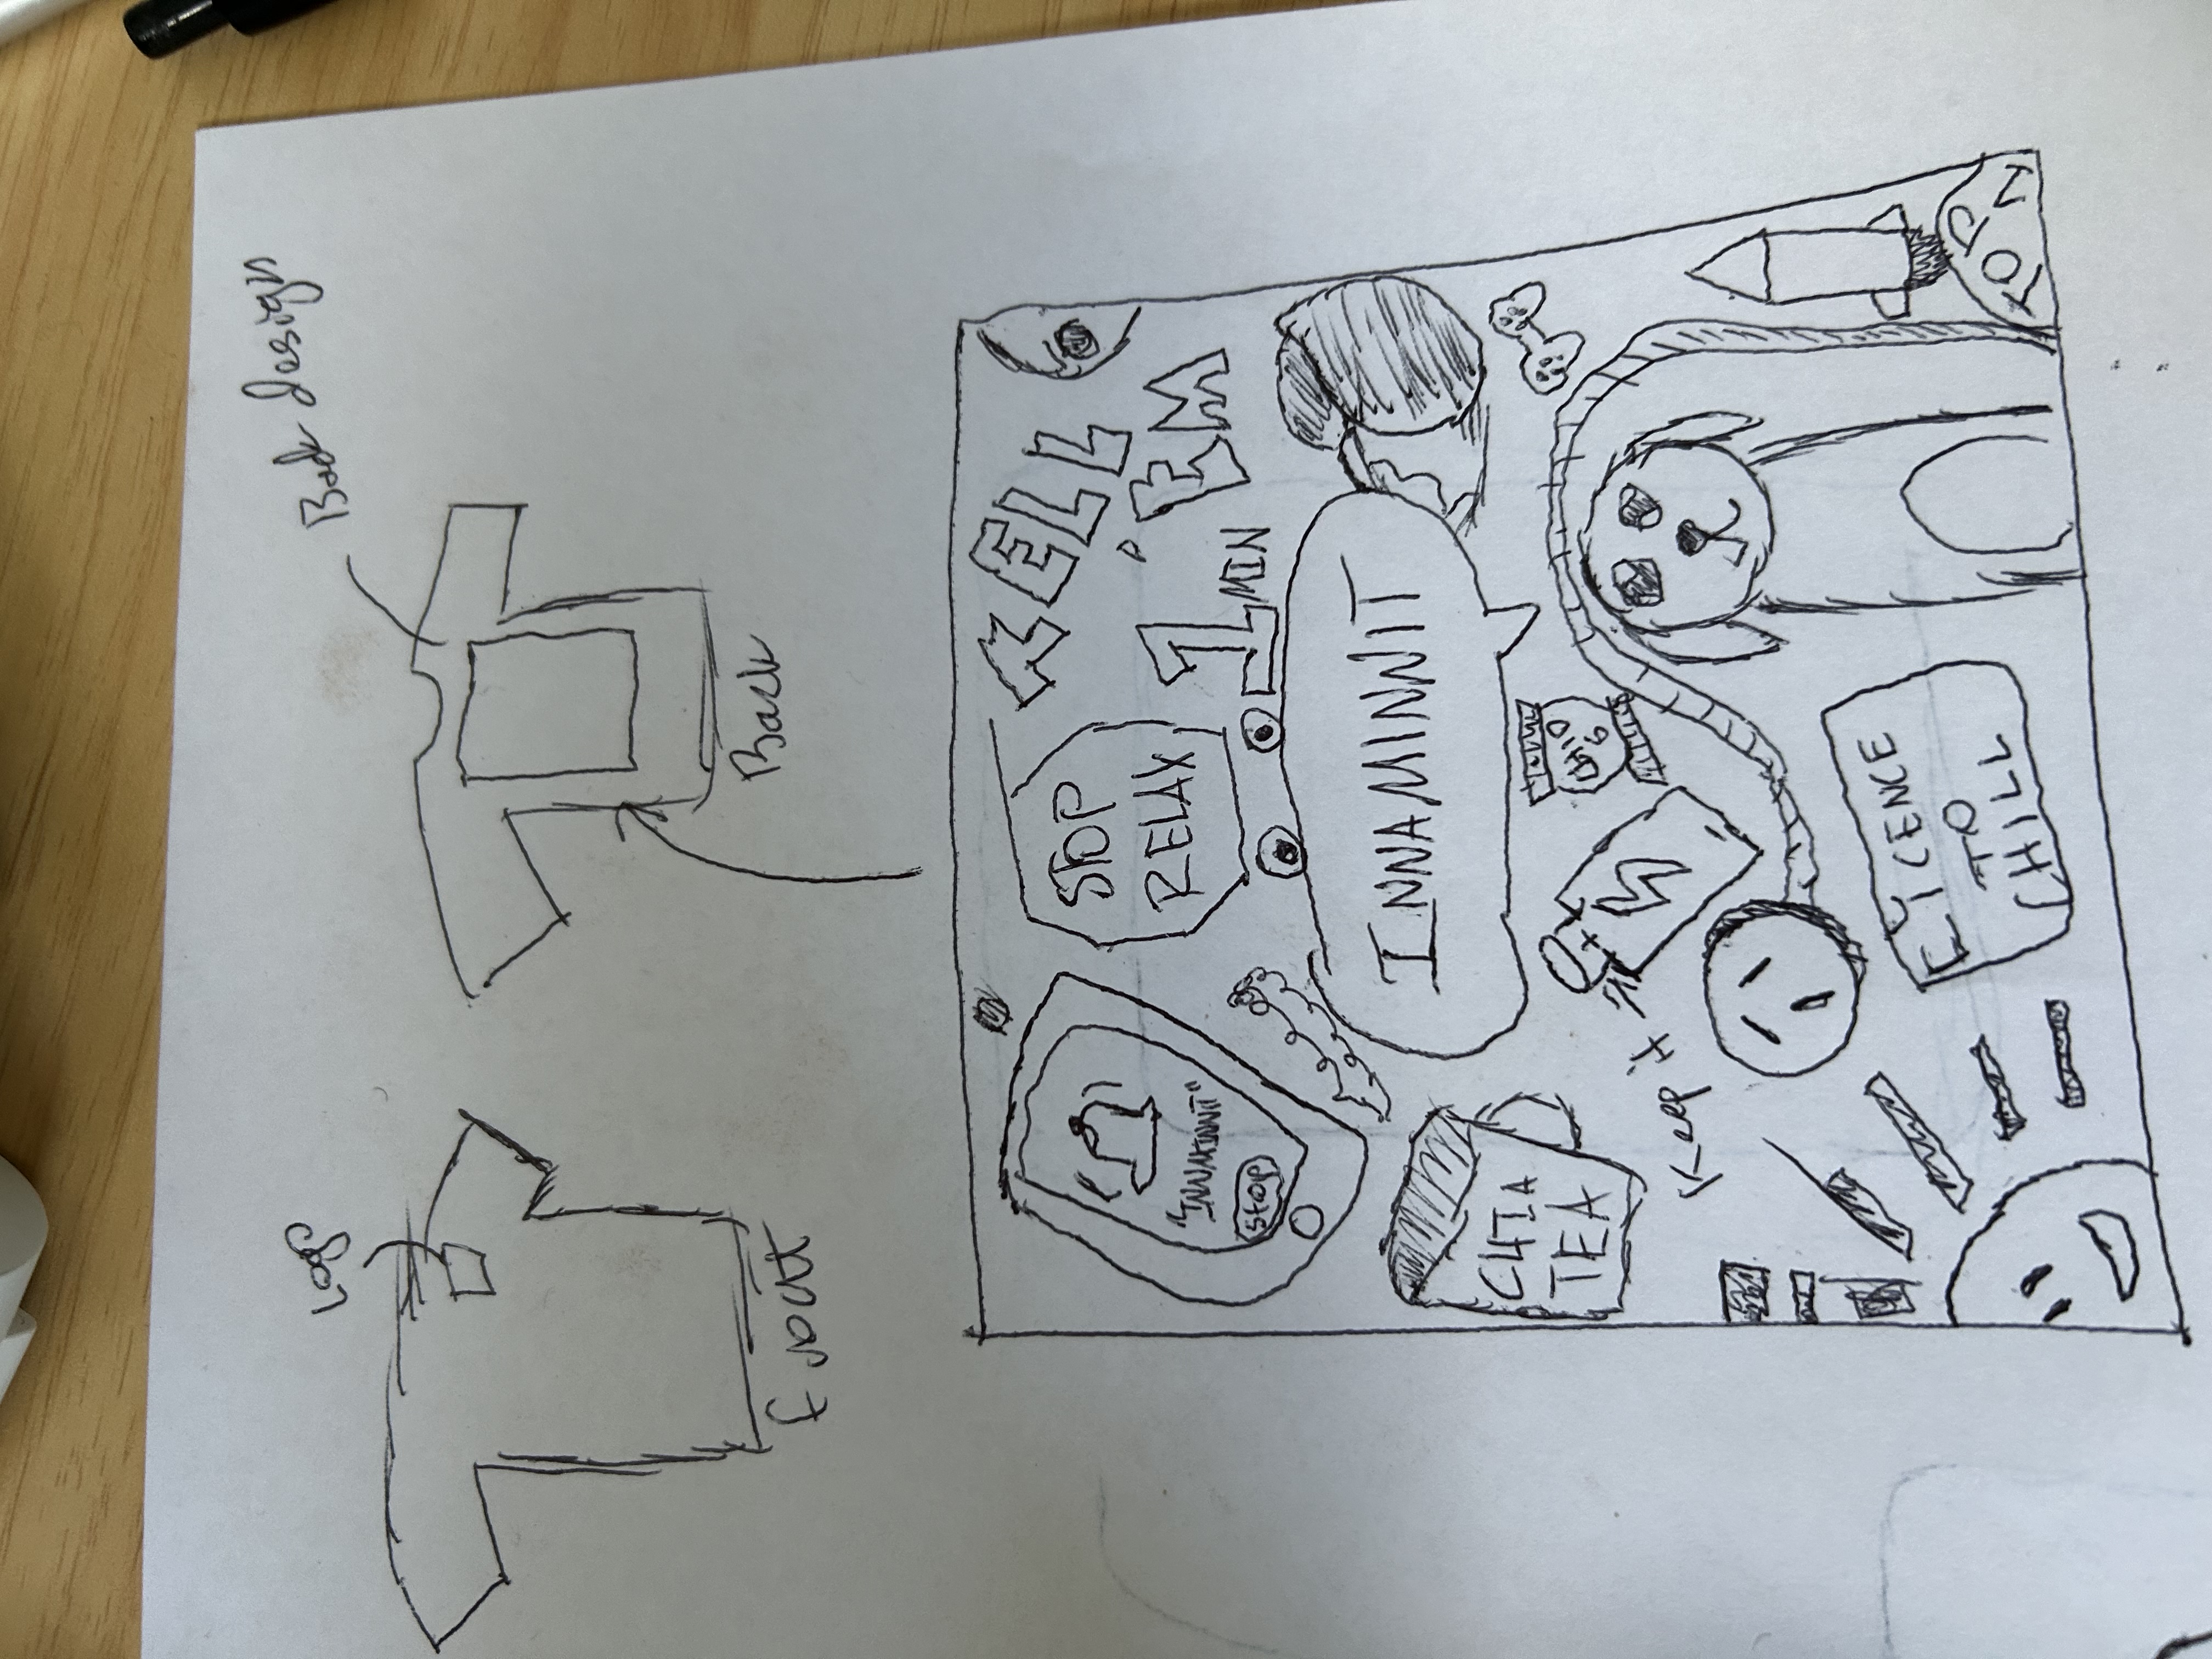 Logo
Back design
Front
Back
"INNAMINNIT"
Stop
STOP
RELAX
TELL
'EM
1 MIN
INNAMINNIT
CHIA
TEA
Keep it
LICENCE
TO
CHILL
TOP
1